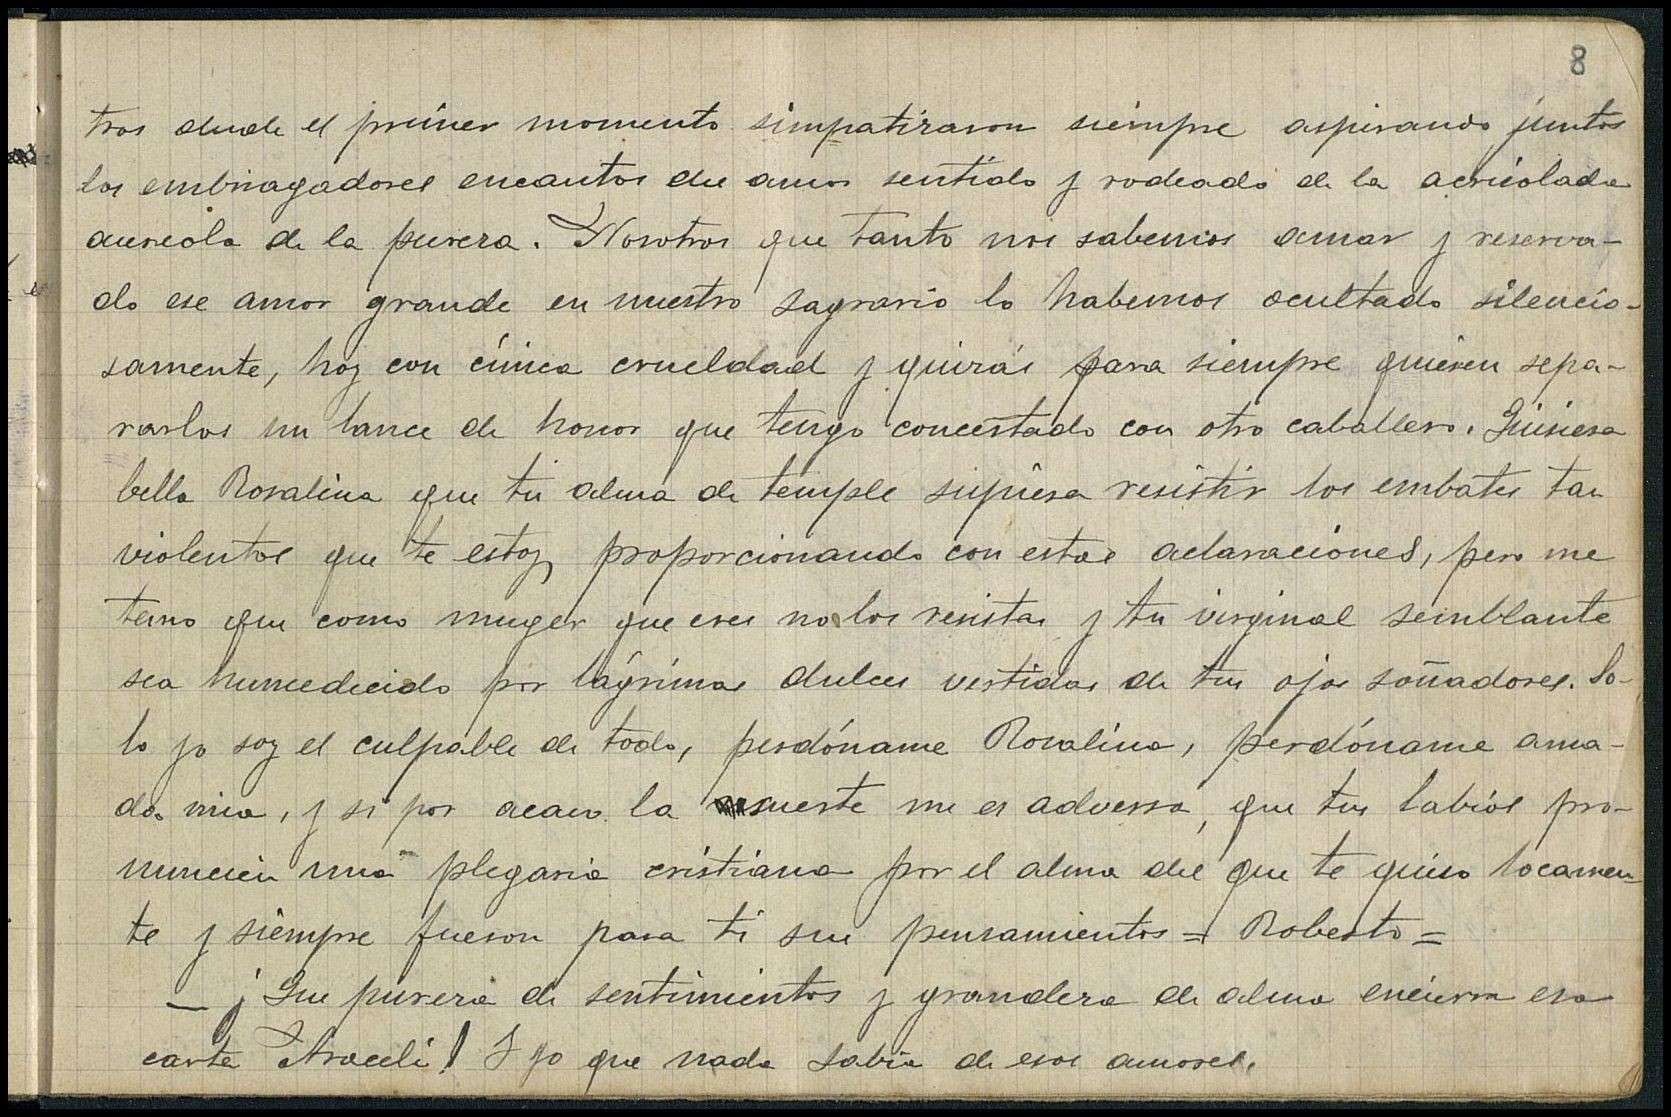 8
tros desde el primer momento simpatizaron siempre aspirando juntos
los embriagadores encantos del amor sentido y rodeado de la acricolada
aureola de la pureza. Nosotros que tanto nos sabemos amar y reserva-
do ese amor grande en nuestro sagrario lo habemos ocultado silencio-
samente, hoy con cínica crueldad y quizás para siempre quieren sepa-
rarlos un lance de honor que tengo concertado con otro caballero. Quisiera
bella Rosalina que tu alma de temple supiera resistir los embates tan
violentos que te estoy proporcionando con estas aclaraciones, pero me
temo que como muger que eres no los resistas y tu virginal semblante
sea humedecido por lágrimas dulces vertidas de tus ojos soñadores. So-
lo yo soy el culpable de todo, perdóname Rosalina, perdóname ama-
da mia, y si por acaso la suerte me es adversa, que tus labios pro-
nuncien una plegaria cristiana por el alma del que te quiso locamen-
te y siempre fueron para ti sus pensamientos = Roberto =
— ¡Que pureza de sentimientos y grandeza de alma encierra esa
carta Araceli! Y yo que nada sabia de esos amores.